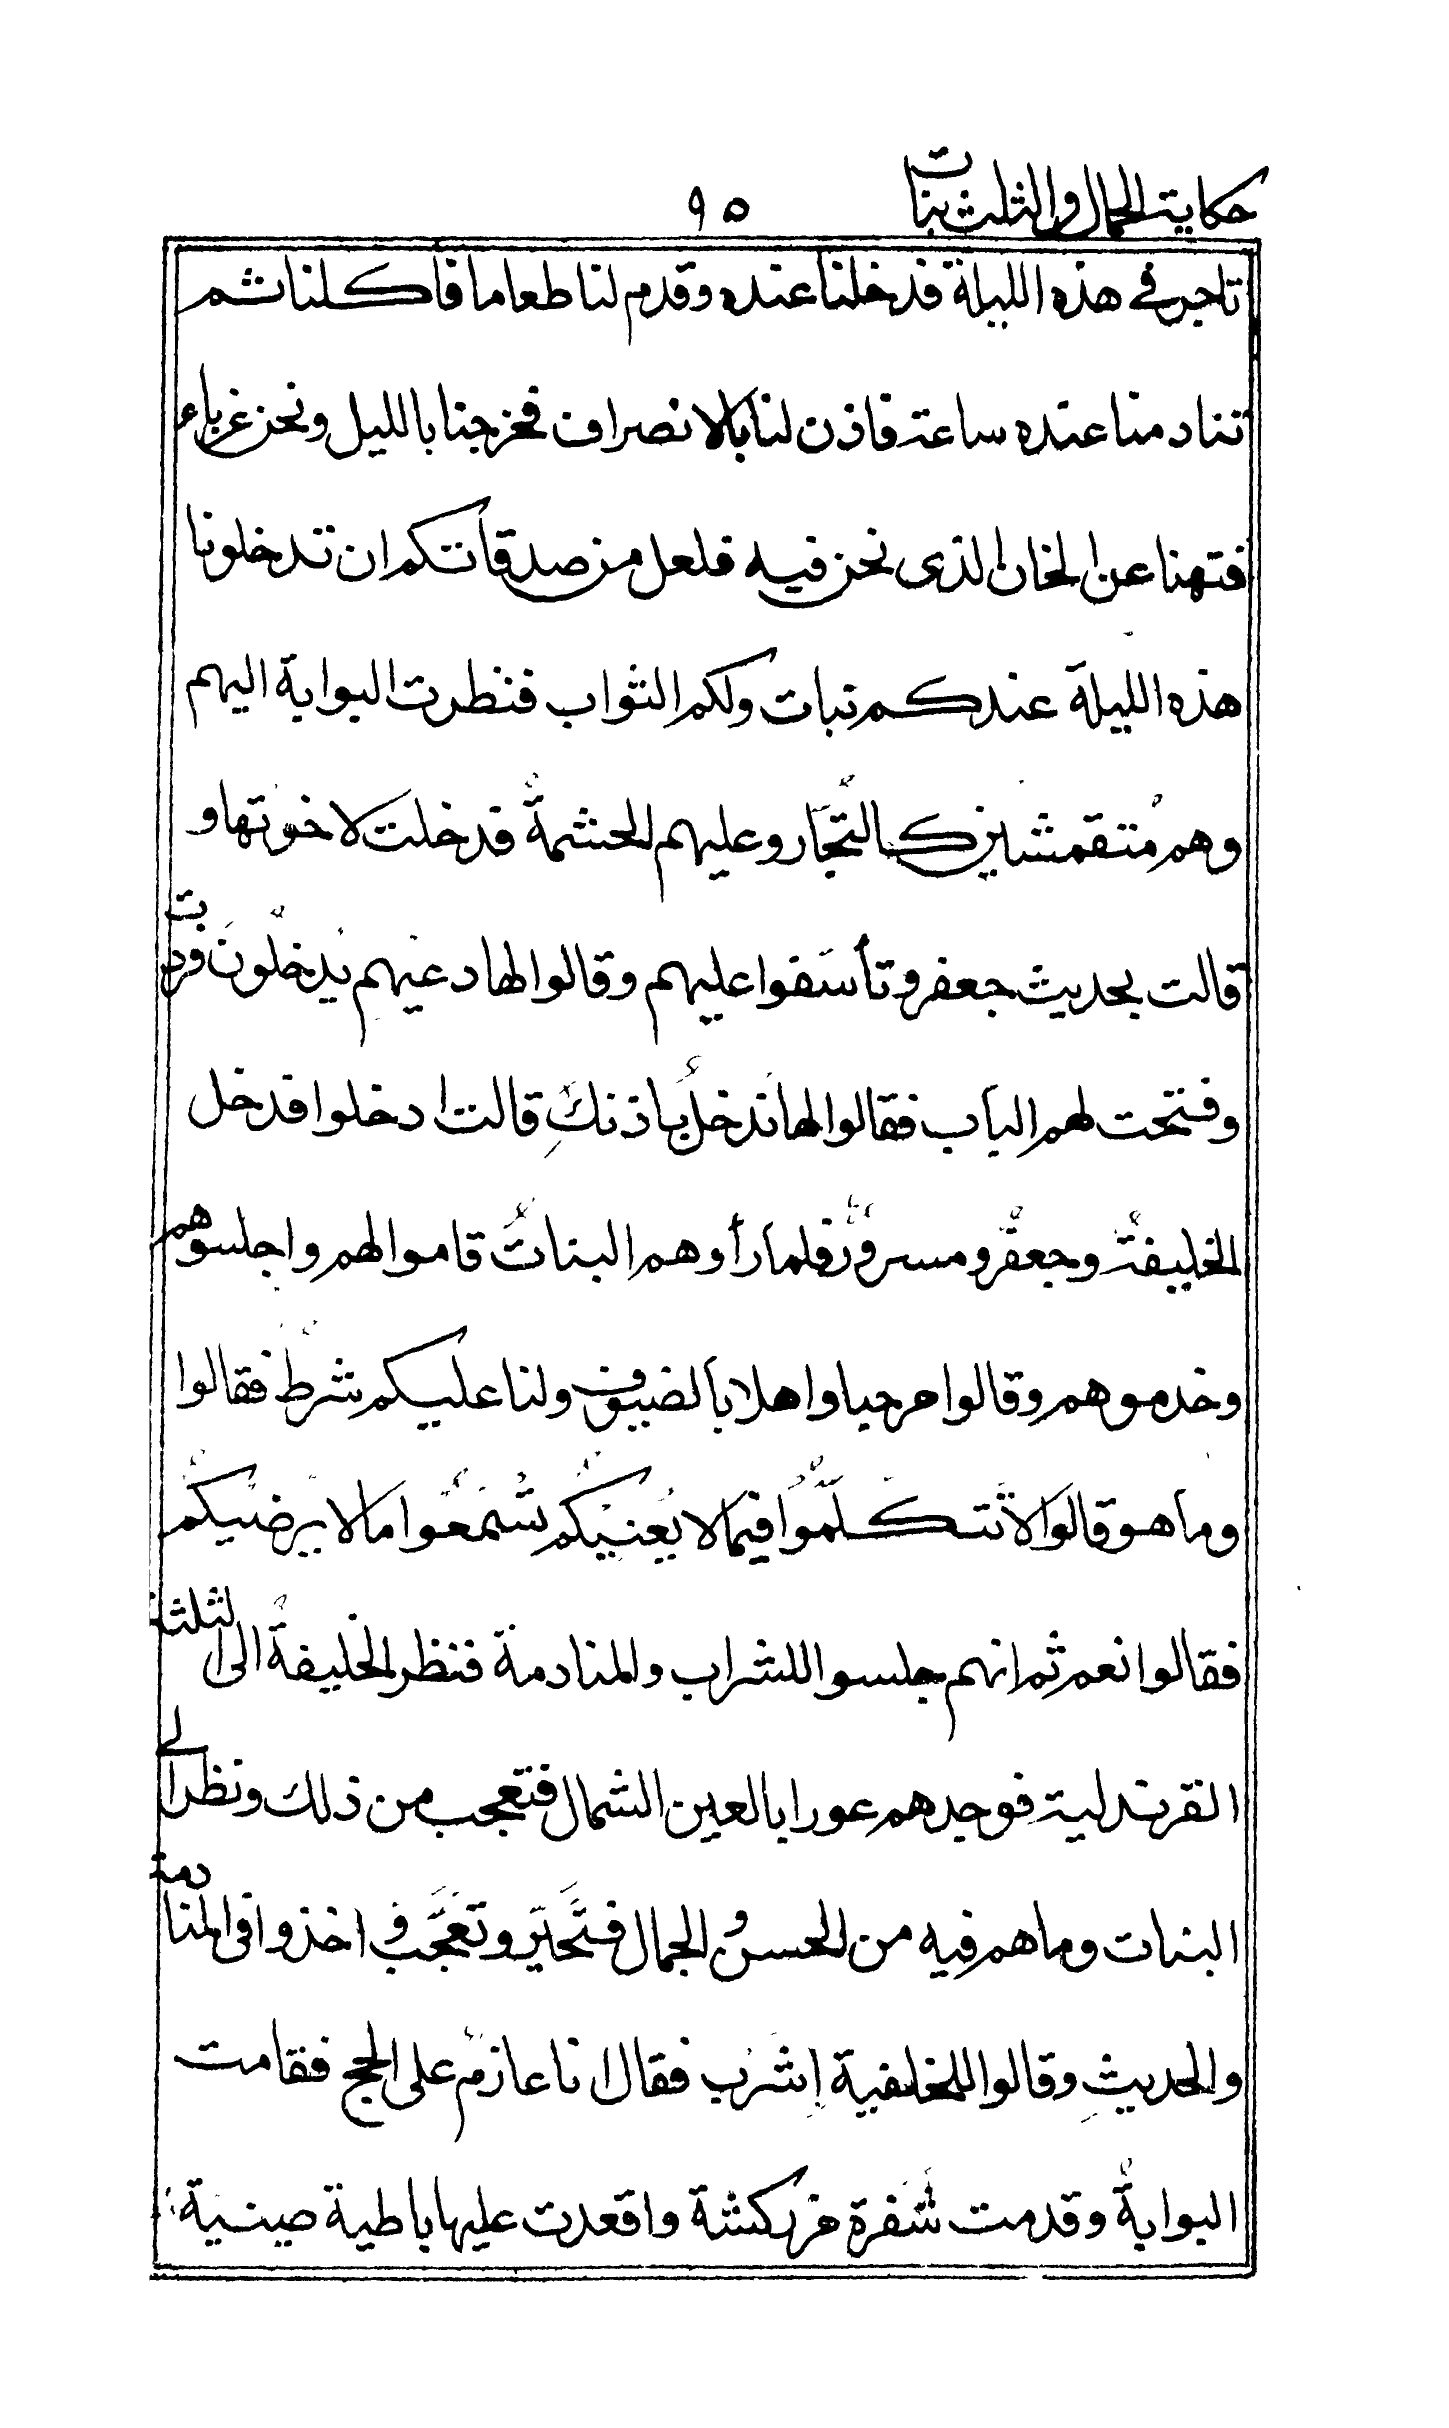 حكاية الحمال والثلث بنات
٩٥
تاجر في هذه الليلة فدخلنا عنده وقدم لنا طعاما فاكلنا ثم
تنادمنا عنده ساعة فاذن لنا بالانصراف فخرجنا بالليل ونحن غرباء
فتهنا عن الخان الذى نحن فيه فلعل من صدقاتكم ان تدخلونا
هذه الليلة عندكم نبات ولكم الثواب فنظرت البوابة اليهم
وهم مُتقمشين كالتجّار وعليهم الحشمةُ فدخلت لاخوتها و
قالت بحديث جعفر وتأسَفوا عليهم وقالوا لها دعيهم يَدخلُونَ فردت
وفتحت لهم الباب فقالوا لها نَدخلُ باذنكِ قالت ادخلوا فدخل
الخليفةُ وجعفرُ ومسرورٌ فلما رأوهم البناتُ قاموا لهم واجلسوهم
وخدموهم وقالوا مرحبا واهلا بالضيوف ولنا عليكم شرطٌ فقالوا
وما هو قالوا لا تَتكلّموُا فيما لا يُعنيكُم تَسْمَعُوا ما لا يرضيكُم
فقالوا نعم ثم انهم جلسوا للشراب والمنادمة فنظر الخليفةُ الى الثلثة
القرندلية فوجدهم عورا بالعين الشمال فتعجب من ذلك ونظر الى
البنات وما هم فيه من الحسن والجمال فتَّحيّر وتعَجَّب واخذوا في المنادمة
والحديثِ وقالوا للخليفة إشْرَب فقال انا عازمٌ على الحج فقامت
البوابةُ وقدمت سُفرة مزركشة واقعدت عليها باطية صينية